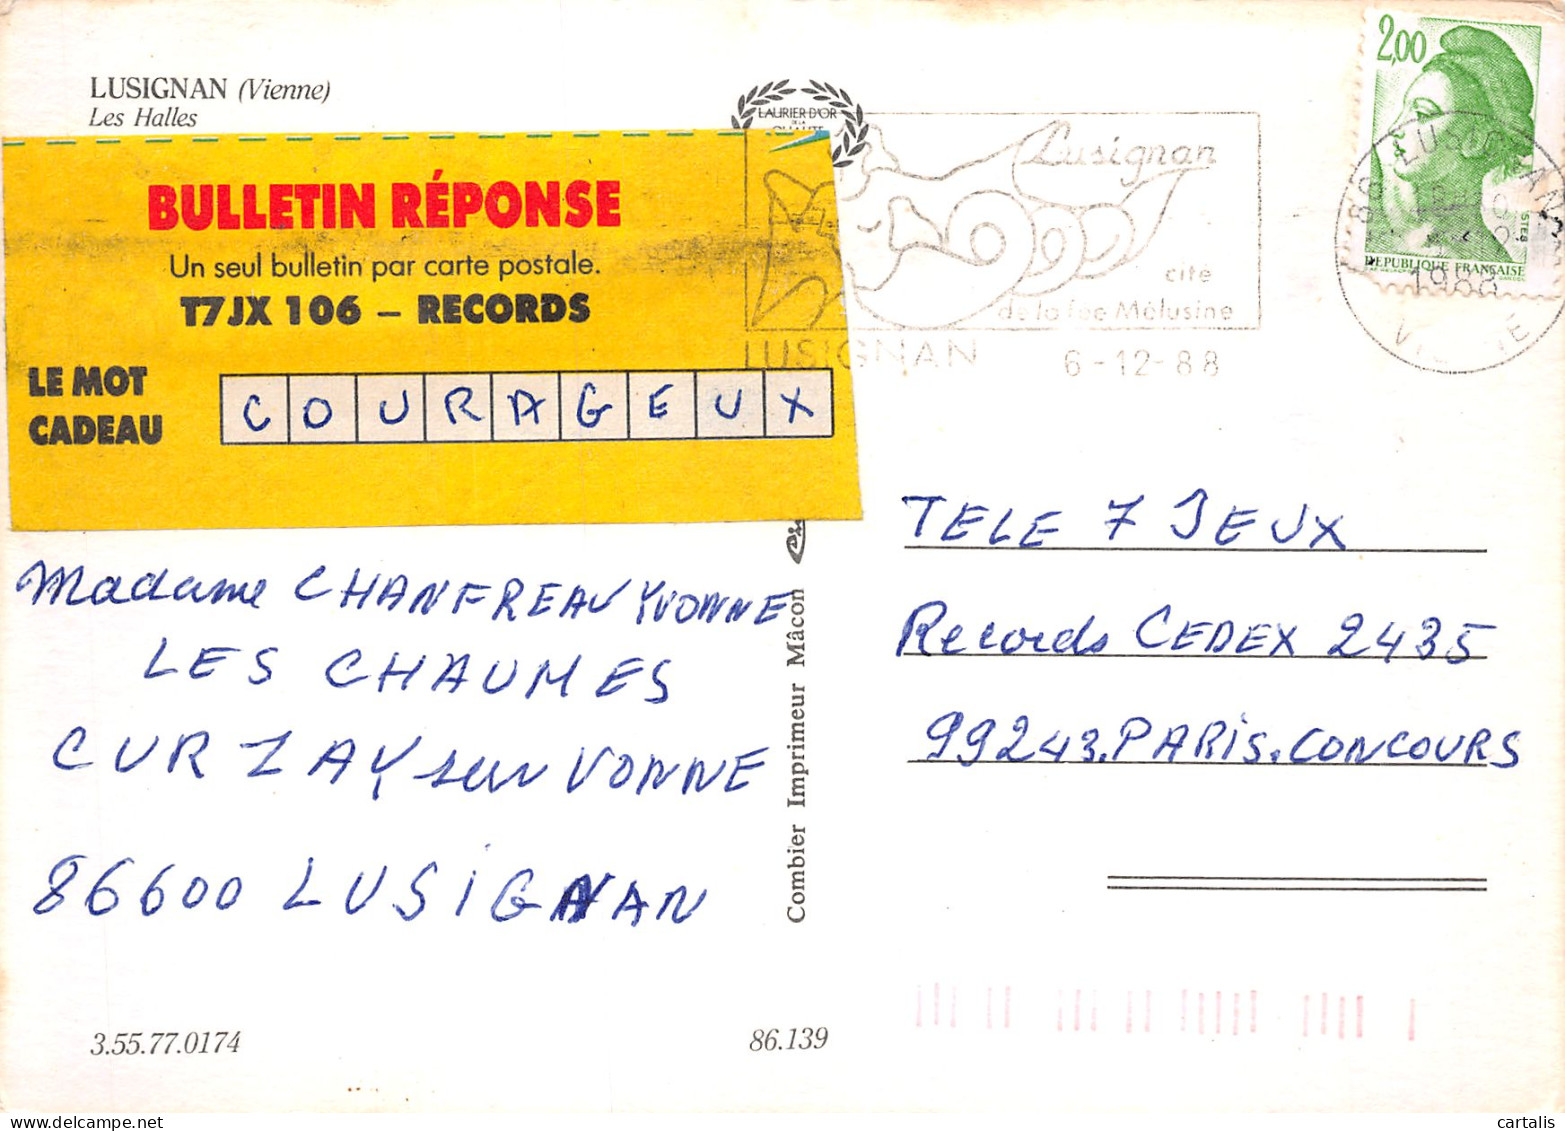 LUSIGNAN (Vienne)
Les Halles
LAURIER D'OR
DE LA
QUALITE
BULLETIN RÉPONSE
Un seul bulletin par carte postale.
T7JX 106 – RECORDS
LE MOT
CADEAU
COURAGEUX
Lusignan
cite
de la fee Mélusine
LUSIGNAN 6-12-88
2,00
REPUBLIQUE FRANÇAISE
POSTES
86 LUSIGNAN
1988
VIENNE
Madame CHANFREAU YVONNE
LES CHAUMES
CURZAY sur VONNE
86600 LUSIGNAN
Combier Imprimeur Mâcon
TELE 7 JEUX
Records CEDEX 2435
99243.PARIS.CONCOURS
3.55.77.0174
86.139
cartalis